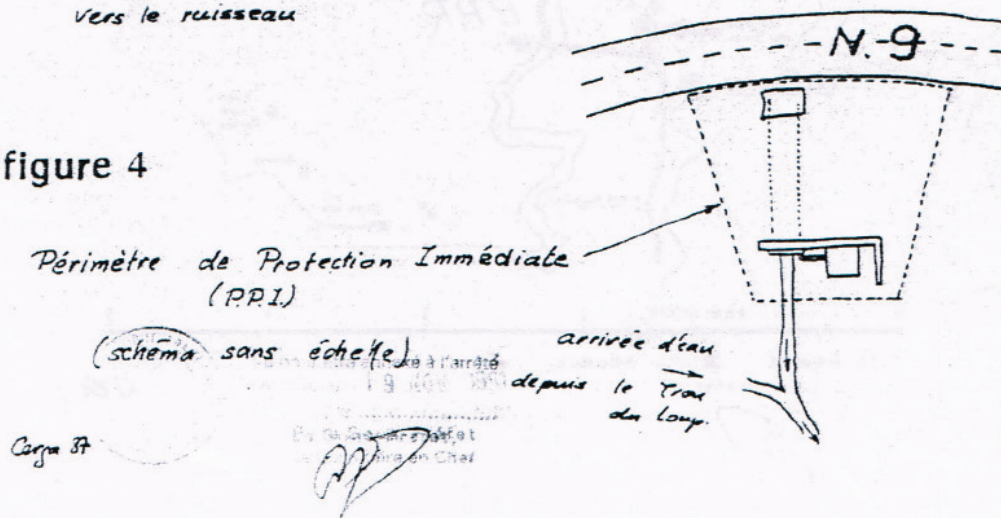 vers le ruisseau
N.9
figure 4
Périmètre de Protection Immédiate
(P.P.I.)
(schéma sans échelle)
à l'arrêté
arrivée d'eau
depuis le Trou
du Loup.
en Chef